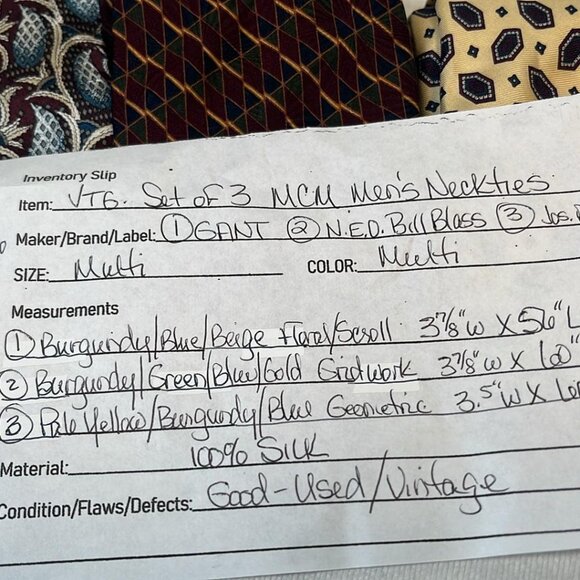 Inventory Slip
Item: VTG. Set of 3 MCM Men's Neckties
Maker/Brand/Label: ① GANT ② N.E.O. Bill Blass ③ Jos.
SIZE: Multi COLOR: Multi
Measurements
① Burgundy/Blue/Beige Floral/Scroll 3 7/8" W X 56" L
② Burgundy/Green/Blue/Gold Gridwork 3 7/8" W X 60"
③ Pale Yellow/Burgundy/Blue Geometric 3.5" W X
Material: 100% Silk
Condition/Flaws/Defects: Good-Used/Vintage